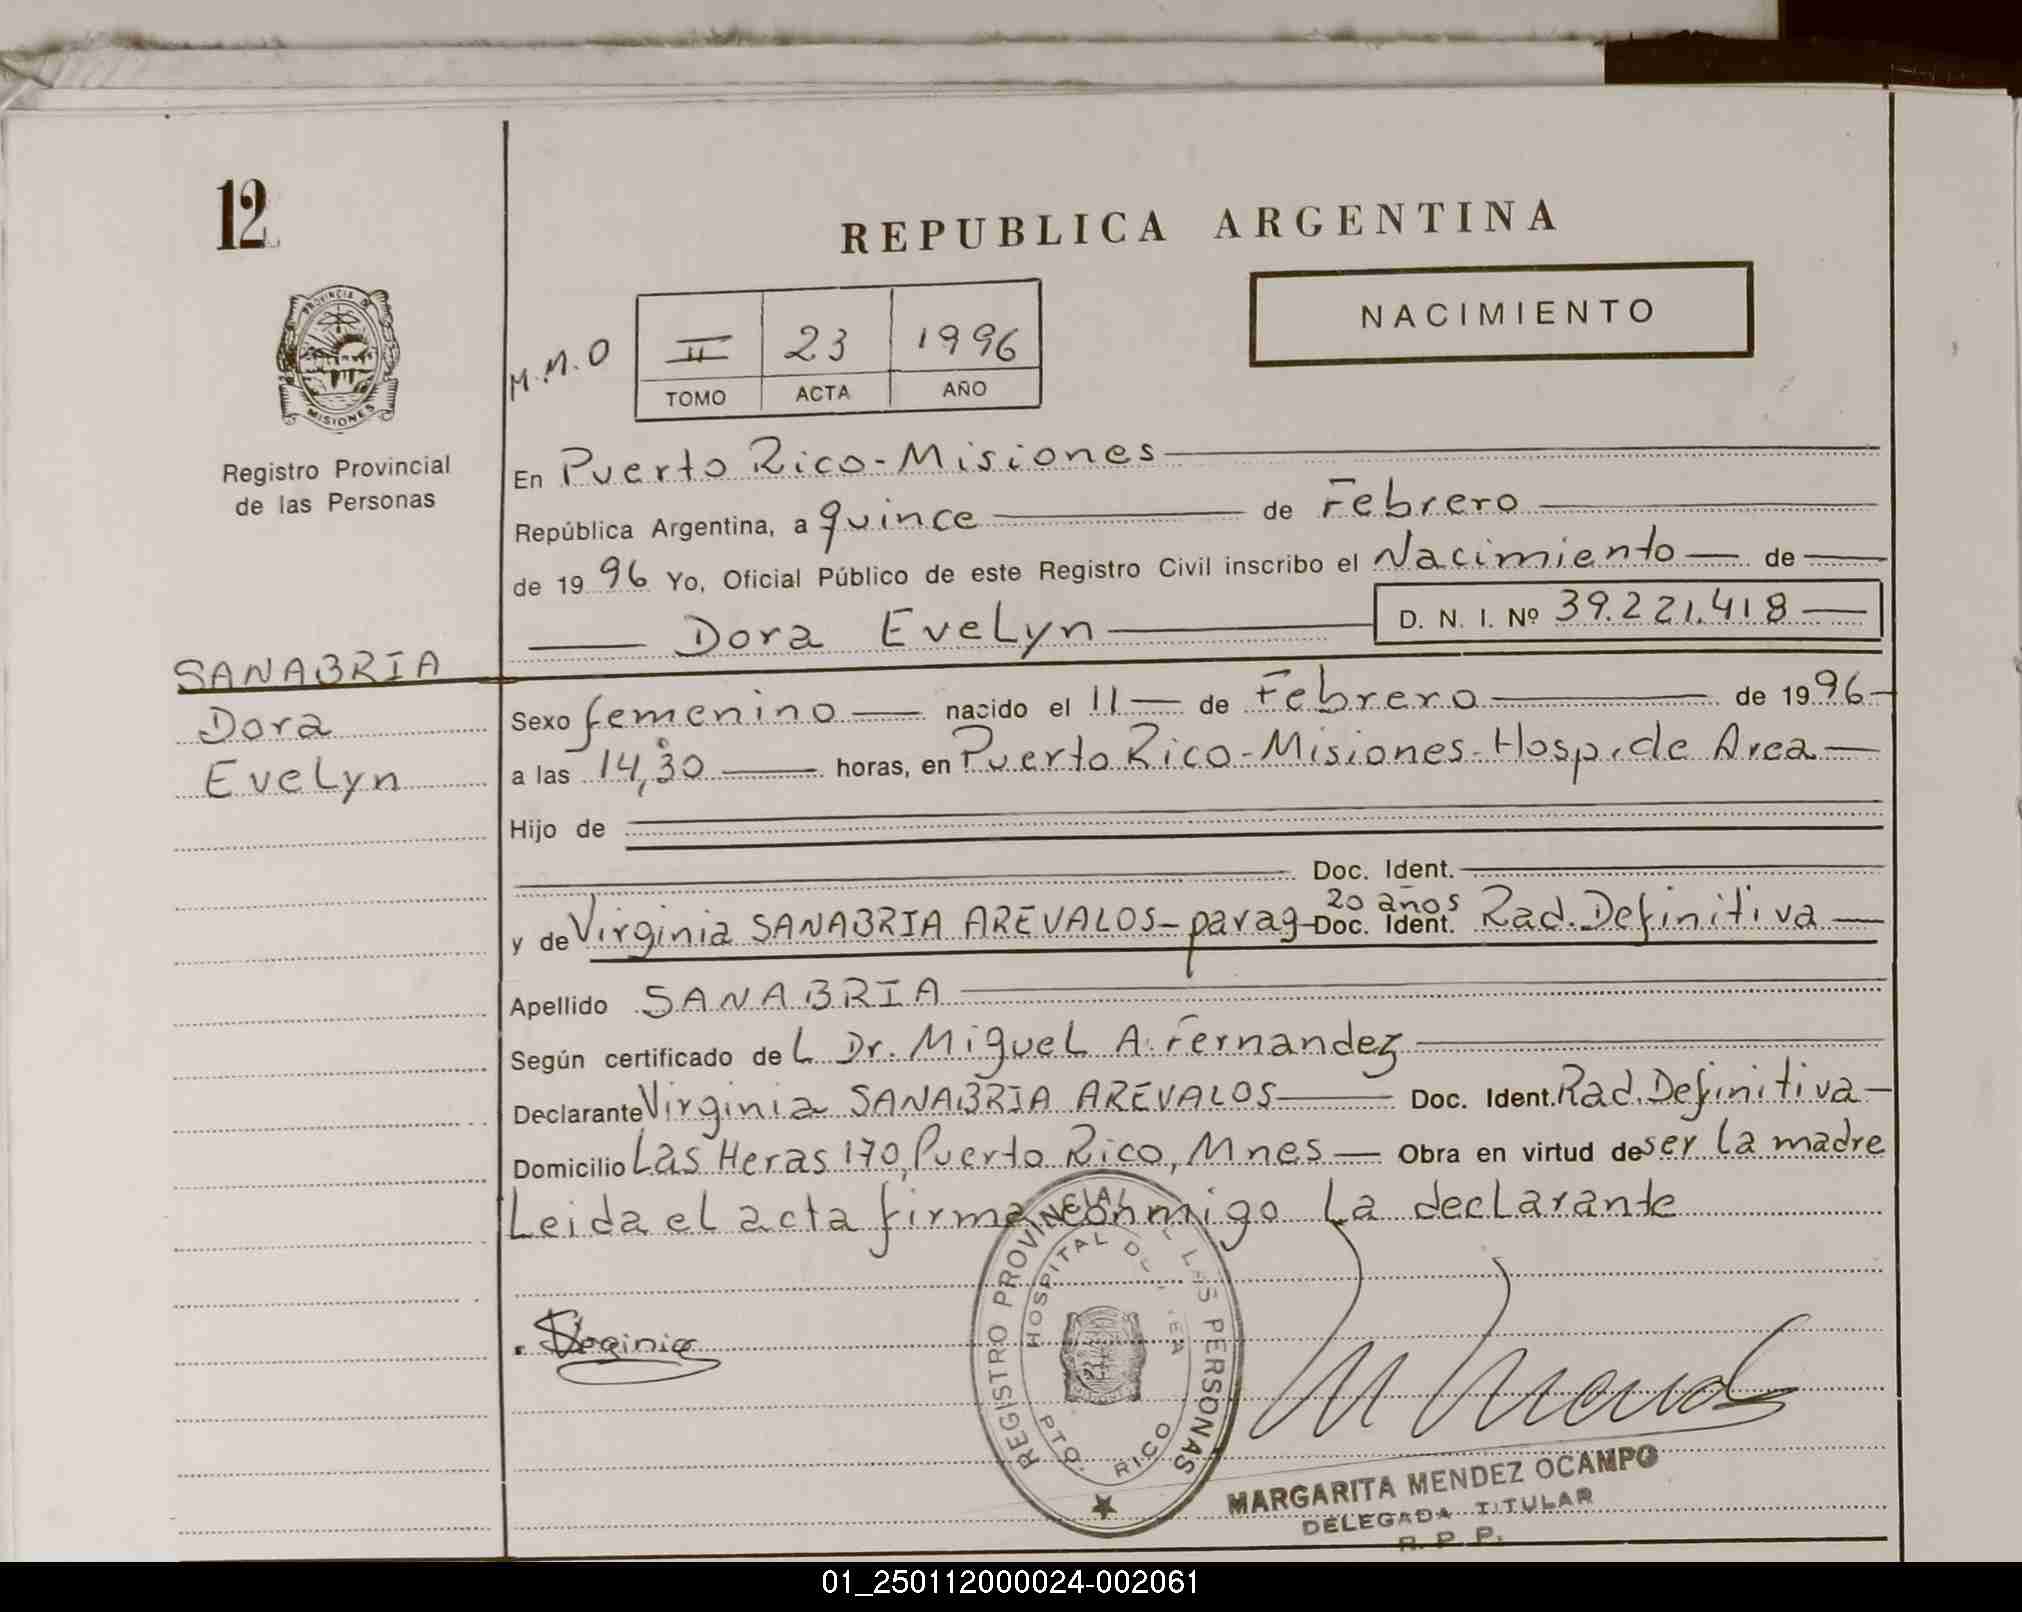 12
REPUBLICA ARGENTINA
NACIMIENTO
PROVINCIA DE
MISIONES
Registro Provincial
de las Personas
M.M.O
II 23 1996
TOMO ACTA AÑO
En Puerto Rico-Misiones
República Argentina, a quince de Febrero
de 1996 Yo, Oficial Público de este Registro Civil inscribo el Nacimiento de
Dora Evelyn D. N. I. Nº 39.221.418
SANABRIA
Dora
Evelyn
Sexo femenino nacido el 11 de Febrero de 1996
a las 14,30 horas, en Puerto Rico-Misiones-Hosp. de Area
Hijo de
Doc. Ident.
20 años
y de Virginia SANABRIA AREVALOS-parag-Doc. Ident. Rad. Definitiva
Apellido SANABRIA
Según certificado del Dr. Miguel A. Fernandez
Declarante Virginia SANABRIA AREVALOS Doc. Ident. Rad. Definitiva
Domicilio Las Heras 170, Puerto Rico, Mnes Obra en virtud de ser la madre
Leida el acta firma conmigo la declarante
Virginia
REGISTRO PROVINCIAL DE LAS PERSONAS
HOSPITAL DE AREA
PTO. RICO
MARGARITA MENDEZ OCAMPO
DELEGADA TITULAR
R. P. P.
01_250112000024-002061